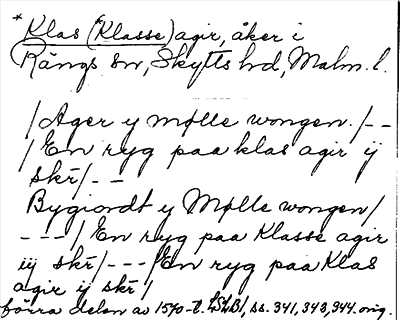 *Klas (Klasse) agir, åker i
Rängs sn, Skytts hd, Malm. l.
/Ager y mølle wongen./--
/En ryg paa klas agir ij
skr/--
Bygiordt y Mølle wongen/
---/En ryg paa Klasse agir
iij skr/---/En ryg paa Klas
agir ij skr/
förra delen av 1570-t. LSLB1, ss. 341, 343, 344. orig.